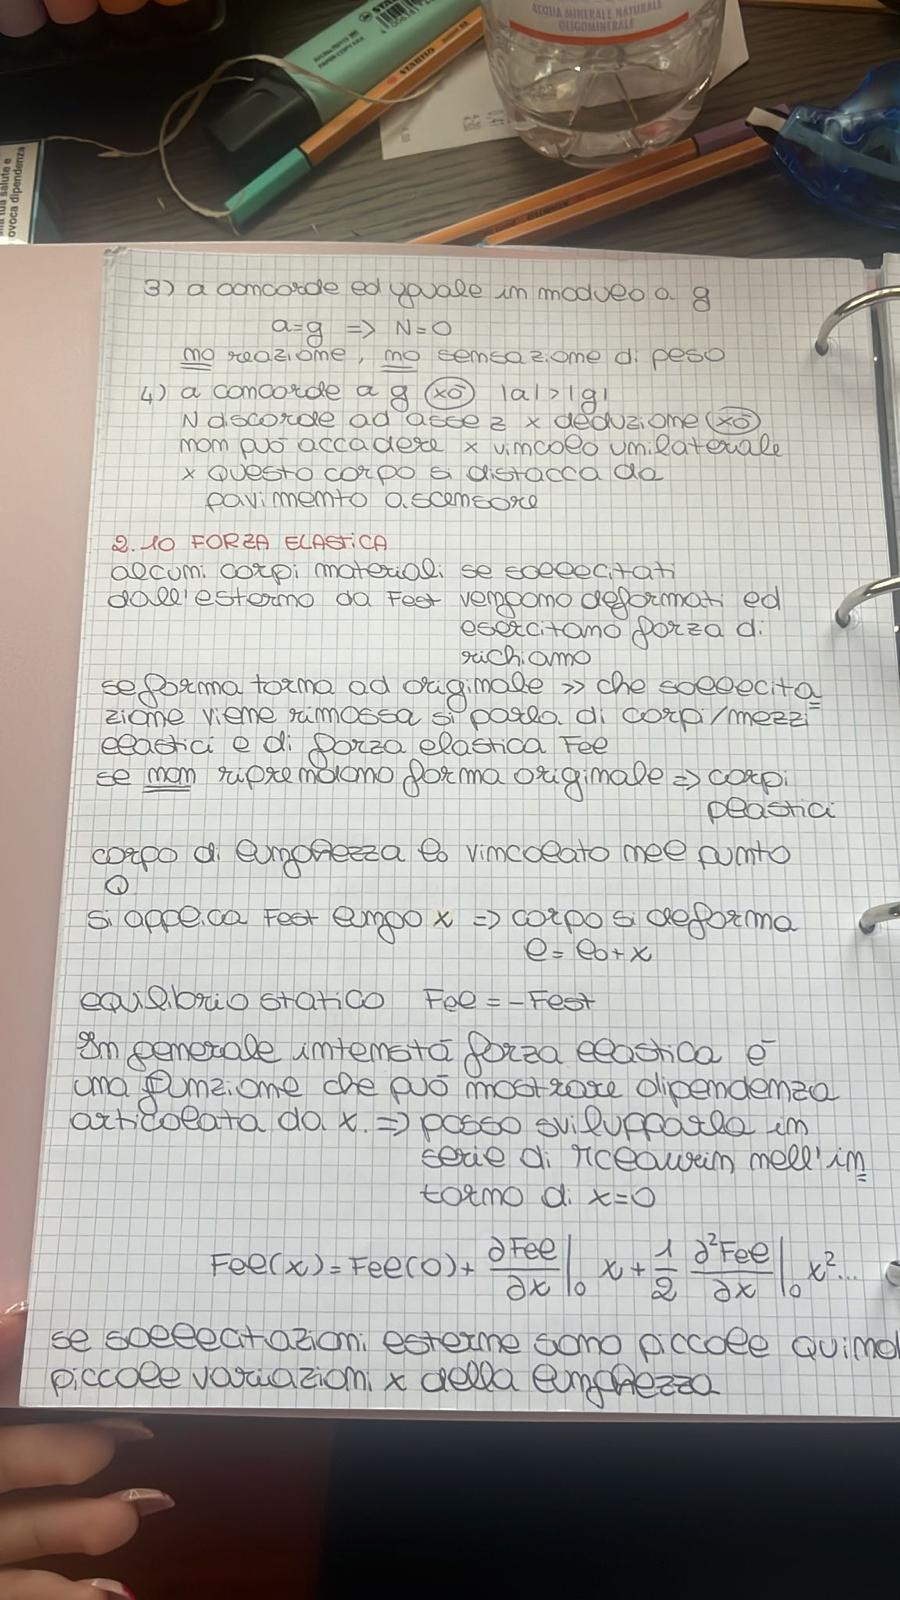 ACQUA MINERALE NATURALE
OLIGOMINERALE
STABILO
ua salute e
ovoca dipendenza
3) a concorde ed uguale in modulo a g
a=g => N=0
no reazione, no sensazione di peso
4) a concorde a g (xò) |a|>|g|
N discorde ad asse z x deduzione (xò)
non può accadere x vincolo unilaterale
x questo corpo si distacca da
pavimento ascensore
2.10 FORZA ELASTICA
alcuni corpi materiali se sollecitati
dall'esterno da Fest vengono deformati ed
esercitano forza di
richiamo
se forma torna ad originale >> che sollecita
zione viene rimossa si parla di corpi/mezzi
elastici e di forza elastica Fel
se non riprendono forma originale => corpi
plastici
corpo di lunghezza l0 vincolato nel punto
O
si applica Fest lungo x => corpo si deforma
l = l0+x
equilibrio statico Fel = -Fest
In generale intensità forza elastica è
una funzione che può mostrare dipendenza
articolata da x. => posso svilupparla in
serie di nell'in
torno di x=0
Fel(x)=Fel(0)+ ∂Fel/∂x|0 x + 1/2 ∂²Fel/∂x|0 x²...
se sollecitazioni esterne sono piccole quind
piccole variazioni x della lunghezza